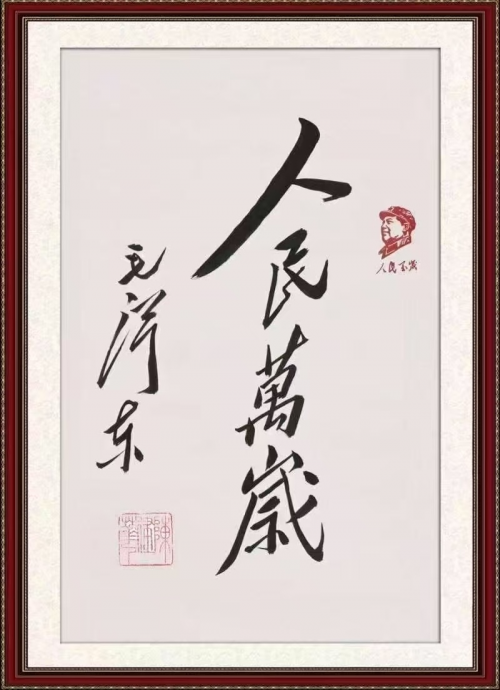 人民萬歲
人民万岁
毛泽东